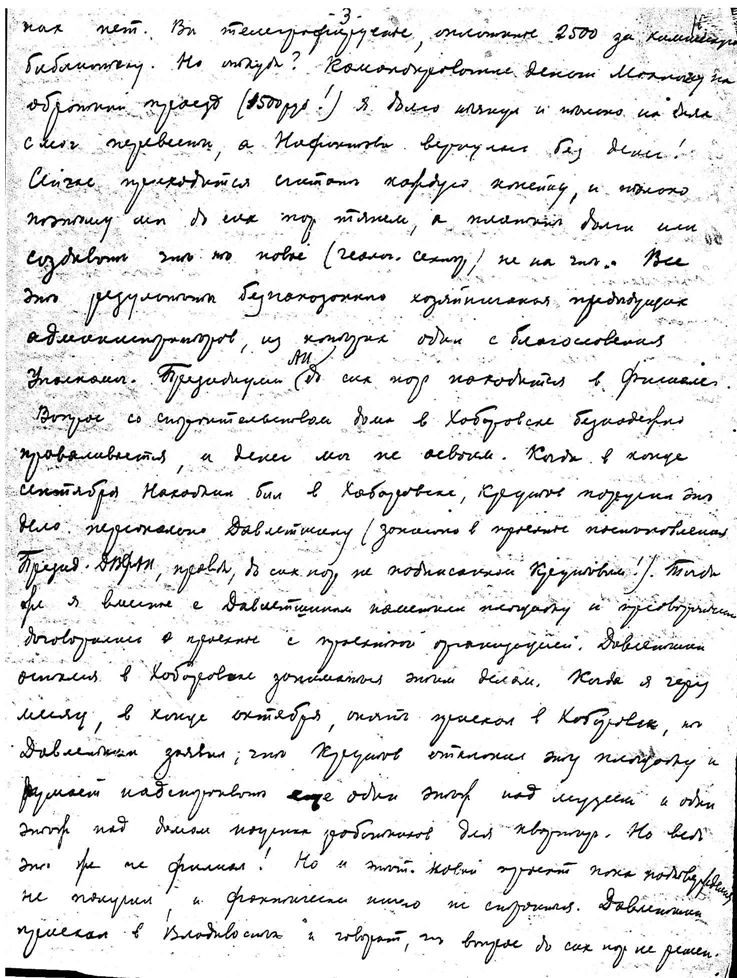 3
нас нет. Вы телеграфируете, оплатите 2500 за
библиотеку. Но откуда? Командировочные деньги на
обратный проезд (1500 руб!) я долго и только на
смог перевести, а вернулась без денег!
Сейчас приходится считать каждую копейку, и только
поэтому мы до сих пор тянем, а платить долги или
создавать что-то новое (геолог. сектор) не на что. Все
это результаты безнаказанного хозяйничания предыдущих
администраторов, из которых один с благословения
Президиума АН до сих пор находится в Филиале.
Вопрос со строительством дома в Хабаровске безнадежно
проваливается, и денег мы не освоим. Когда в конце
сентября был в Хабаровске, Крушанов поручил это
дело персонально Давлетшину (записано в проекте постановления
Презид. ДВФАН, правда, до сих пор не подписанном!). Тогда
же я вместе с Давлетшиным наметили площадку и предварительно
договорились о проекте с проектной организацией. Давлетшин
остался в Хабаровске заниматься этим делом. Когда я через
месяц, в конце октября, опять приехал в Хабаровск, то
Давлетшин заявил, что отклонил эту площадку и
думает надстраивать еще один этаж над музеем и один
этаж над домом научных работников для квартир. Но ведь
это же не филиал! Но и этот новый проект пока подтверждения
не получил, и фактически ничего не строится. Давлетшин
приехал в Владивосток и говорит, что вопрос до сих пор не решен.